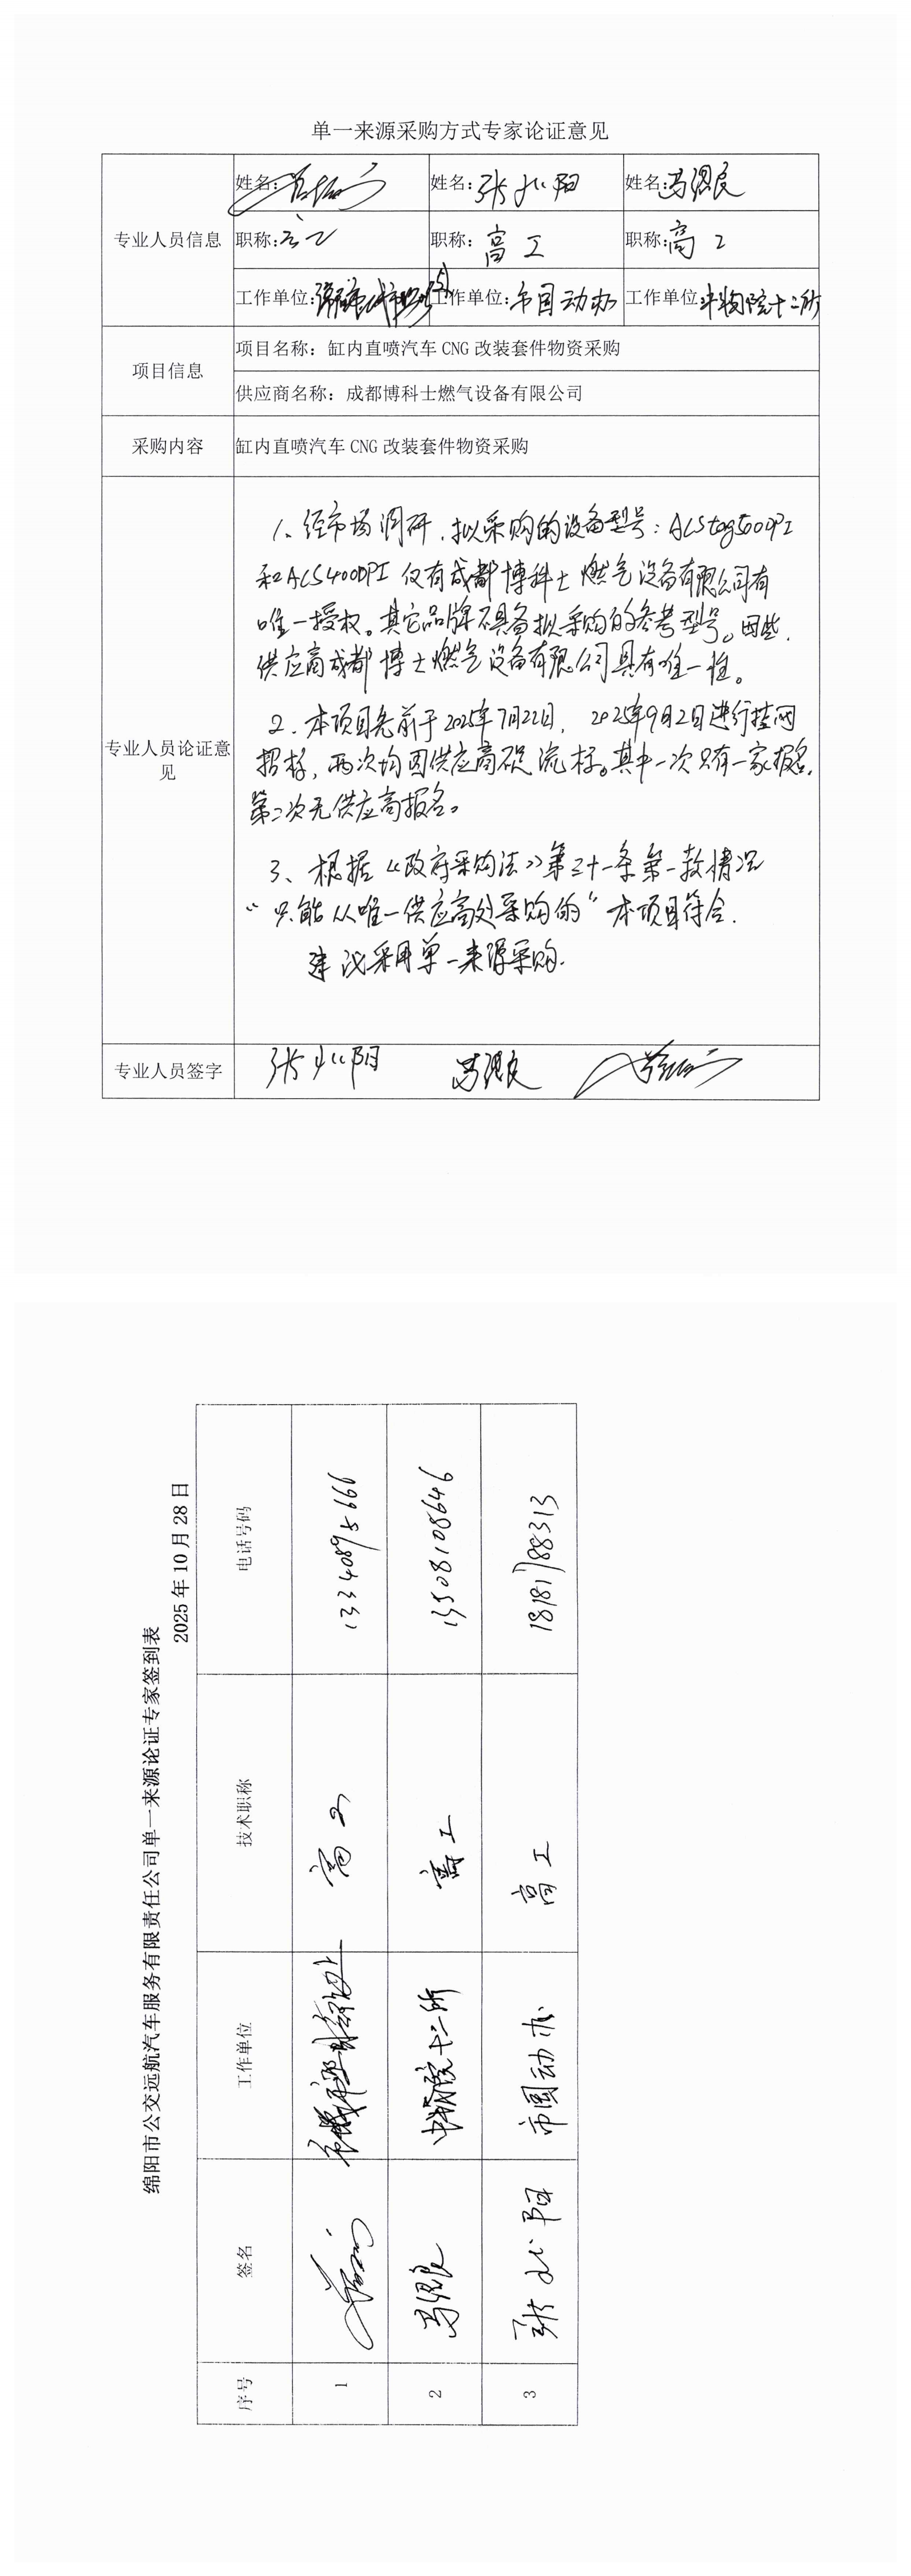 单一来源采购方式专家论证意见
专业人员信息
姓名:
姓名:张 阳
姓名:冯
职称:高工
职称:高工
职称:高工
工作单位:
工作单位:市国动办
工作单位 中物院十二所
项目信息
项目名称:缸内直喷汽车CNG改装套件物资采购
供应商名称:成都博科士燃气设备有限公司
采购内容
缸内直喷汽车CNG改装套件物资采购
专业人员论证意见
1、经市场调研,拟采购的设备型号:
和ACS400DPI 仅有成都博科士燃气设备有限公司有
唯一授权。其它品牌不具备拟采购的参考型号。因此,
供应商成都博士燃气设备有限公司具有唯一性。
2、本项目先前于2025年7月22日,2025年9月2日进行挂网
招标,两次均因供应商 流标。其中一次只有一家报名,
第二次无供应商报名。
3、根据《政府采购法》第三十一条第一款情况
“只能从唯一供应商处采购的”本项目符合.
建议采用单一来源采购.
专业人员签字
张 阳
冯
绵阳市公交远航汽车服务有限责任公司单一来源论证专家签到表
2025年10月28日
序号 签名 工作单位 技术职称 电话号码
1 高工 13340895666
2 冯 中物院十二所 高工 13508108646
3 张 阳 市国动办 高工 18181788313